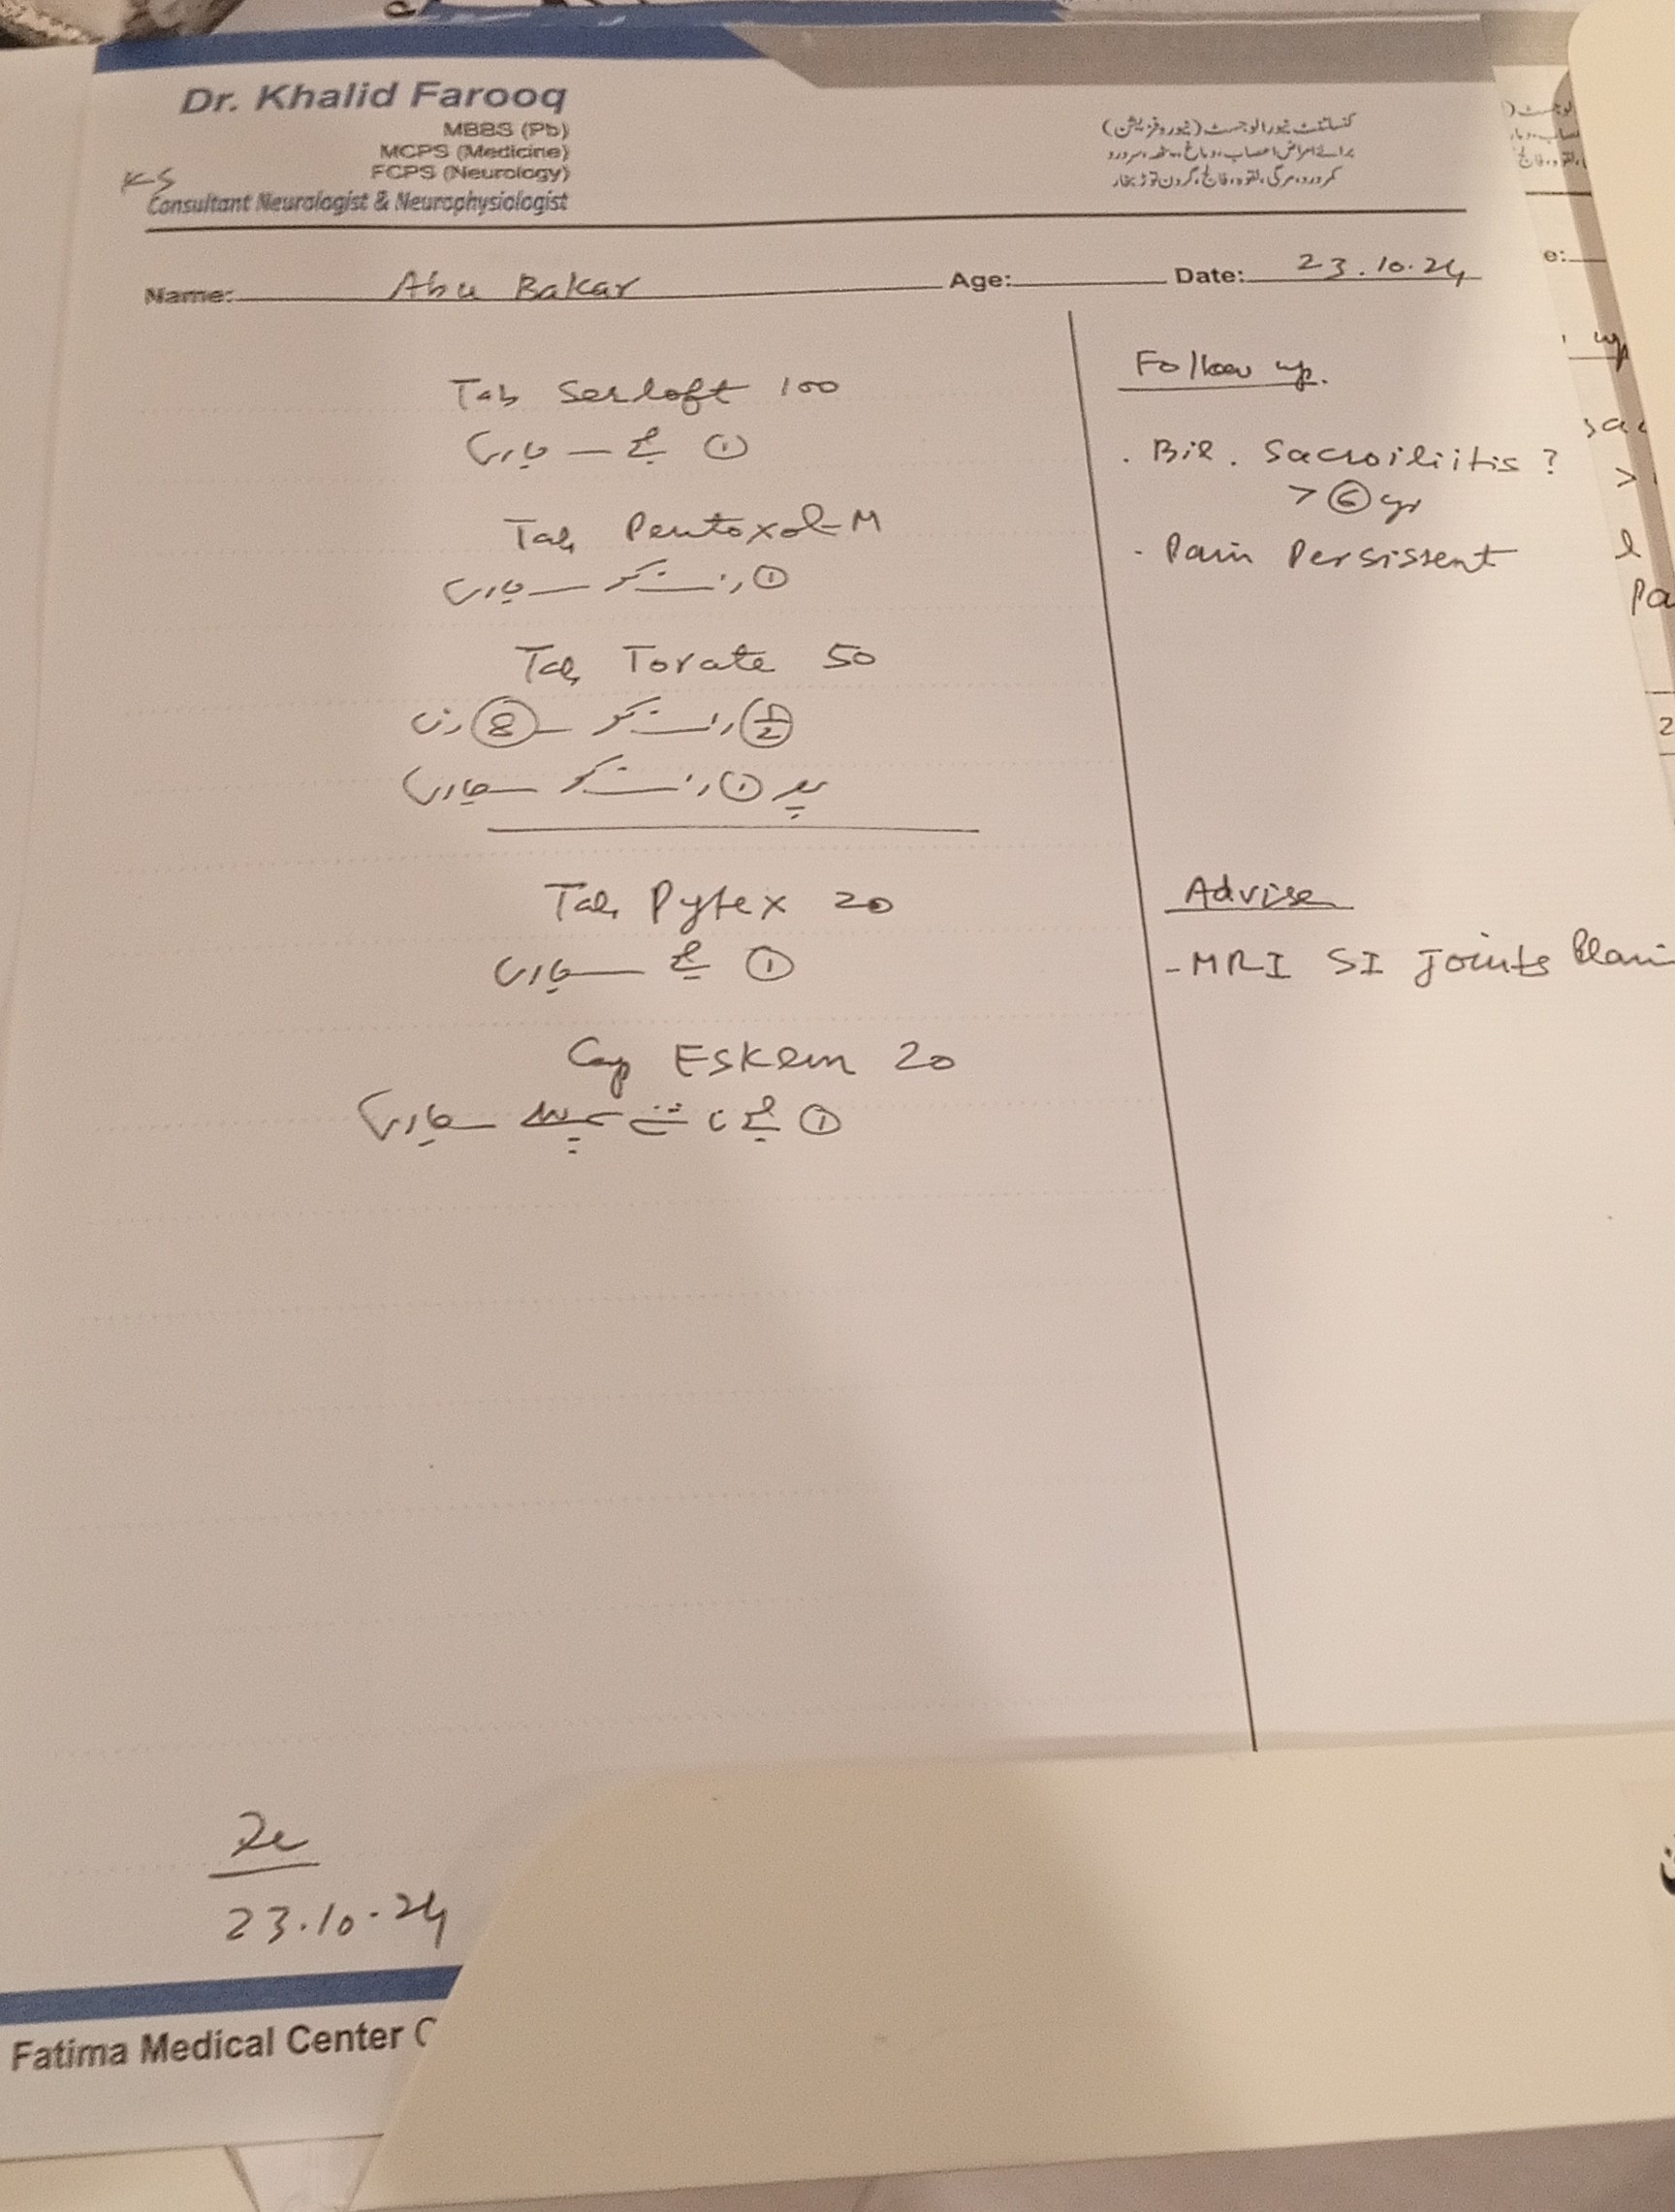 Dr. Khalid Farooq
MBBS (Pb)
MCPS (Medicine)
FCPS (Neurology)
Consultant Neurologist & Neurophysiologist
کنسلٹنٹ نیورالوجسٹ (نیوروفزیشن)
برائے امراض اعصاب، دماغ، پٹھے، سردرد
کمردرد، مرگی، لقوہ، فالج، گردن توڑ بخار
Name: Abu Bakar Age: Date: 23.10.24
Tab Serloft 100
① صبح — جاری
Tab Pentoxol-M
① رات کو — جاری
Tab Torate 50
½ رات کو — ⑧ دن
پھر ① رات کو — جاری
Tab Pytex 20
① صبح — جاری
Cap Eskem 20
① صبح ناشتے سے پہلے — جاری
Follow up.
. Bil. Sacroiliitis ?
> ⑥ yr
- Pain Persistent
Advise
- MRI SI Joints
23.10.24
Fatima Medical Center